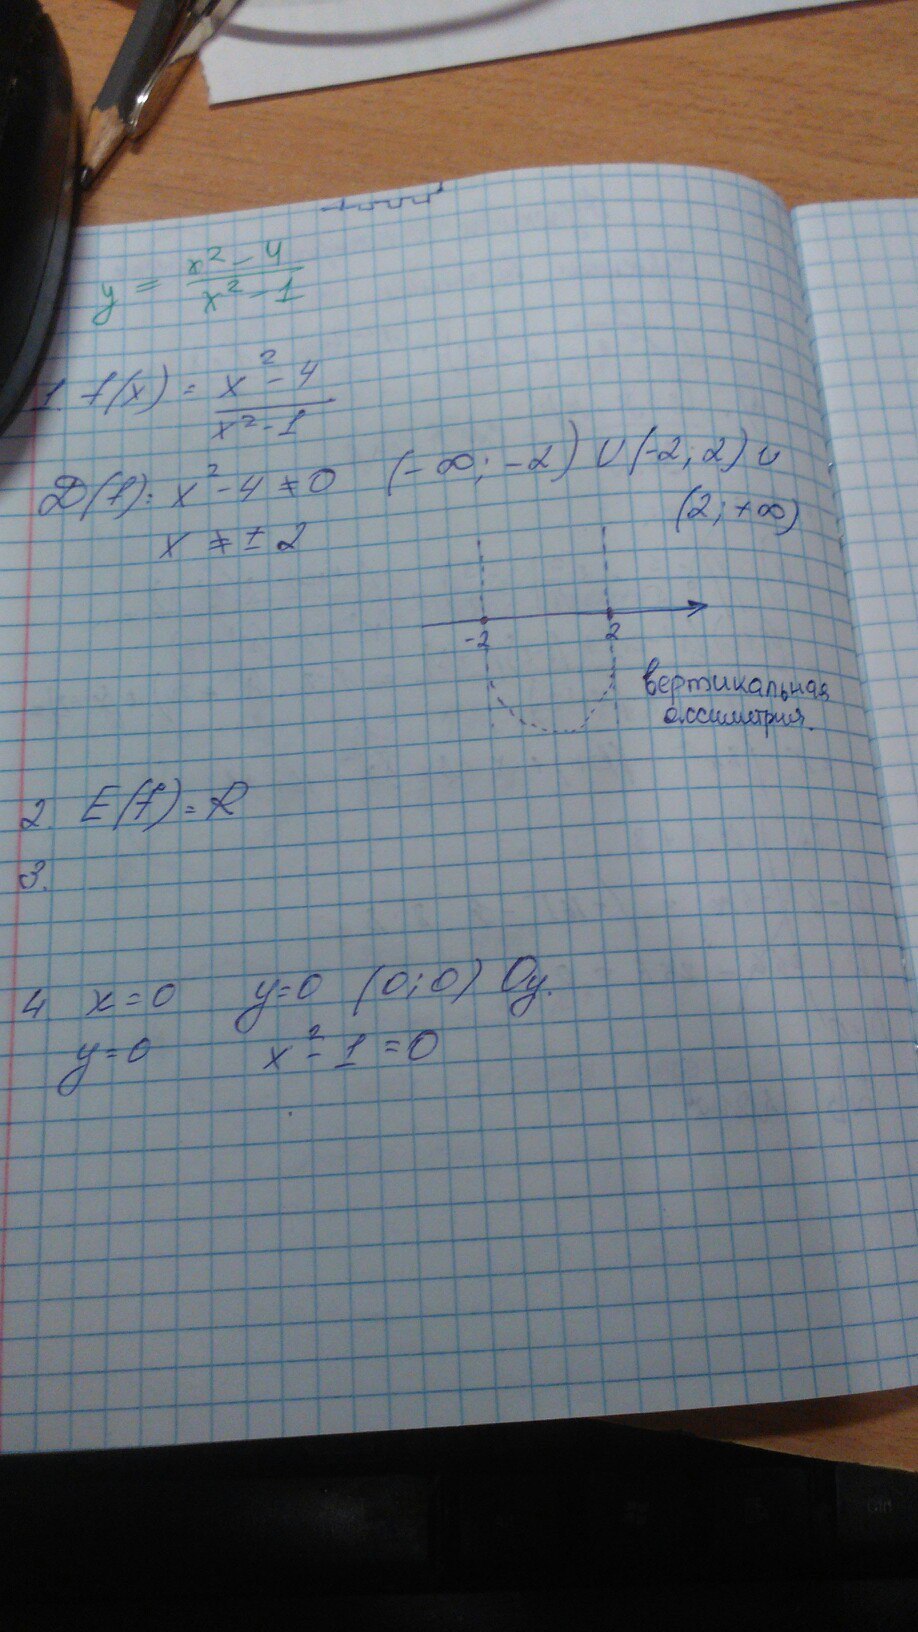 y = x² - 4 / x² - 1
1. f(x) = x² - 4 / x² - 1
D(f): x² - 4 ≠ 0 (-∞; -2) ∪ (-2; 2) ∪
(2; +∞)
x ≠ ± 2
-2 2
вертикальная
ассиметрия.
2. E(f) = R
3.
4 x = 0 y = 0 (0; 0) Oy.
y = 0 x² - 1 = 0